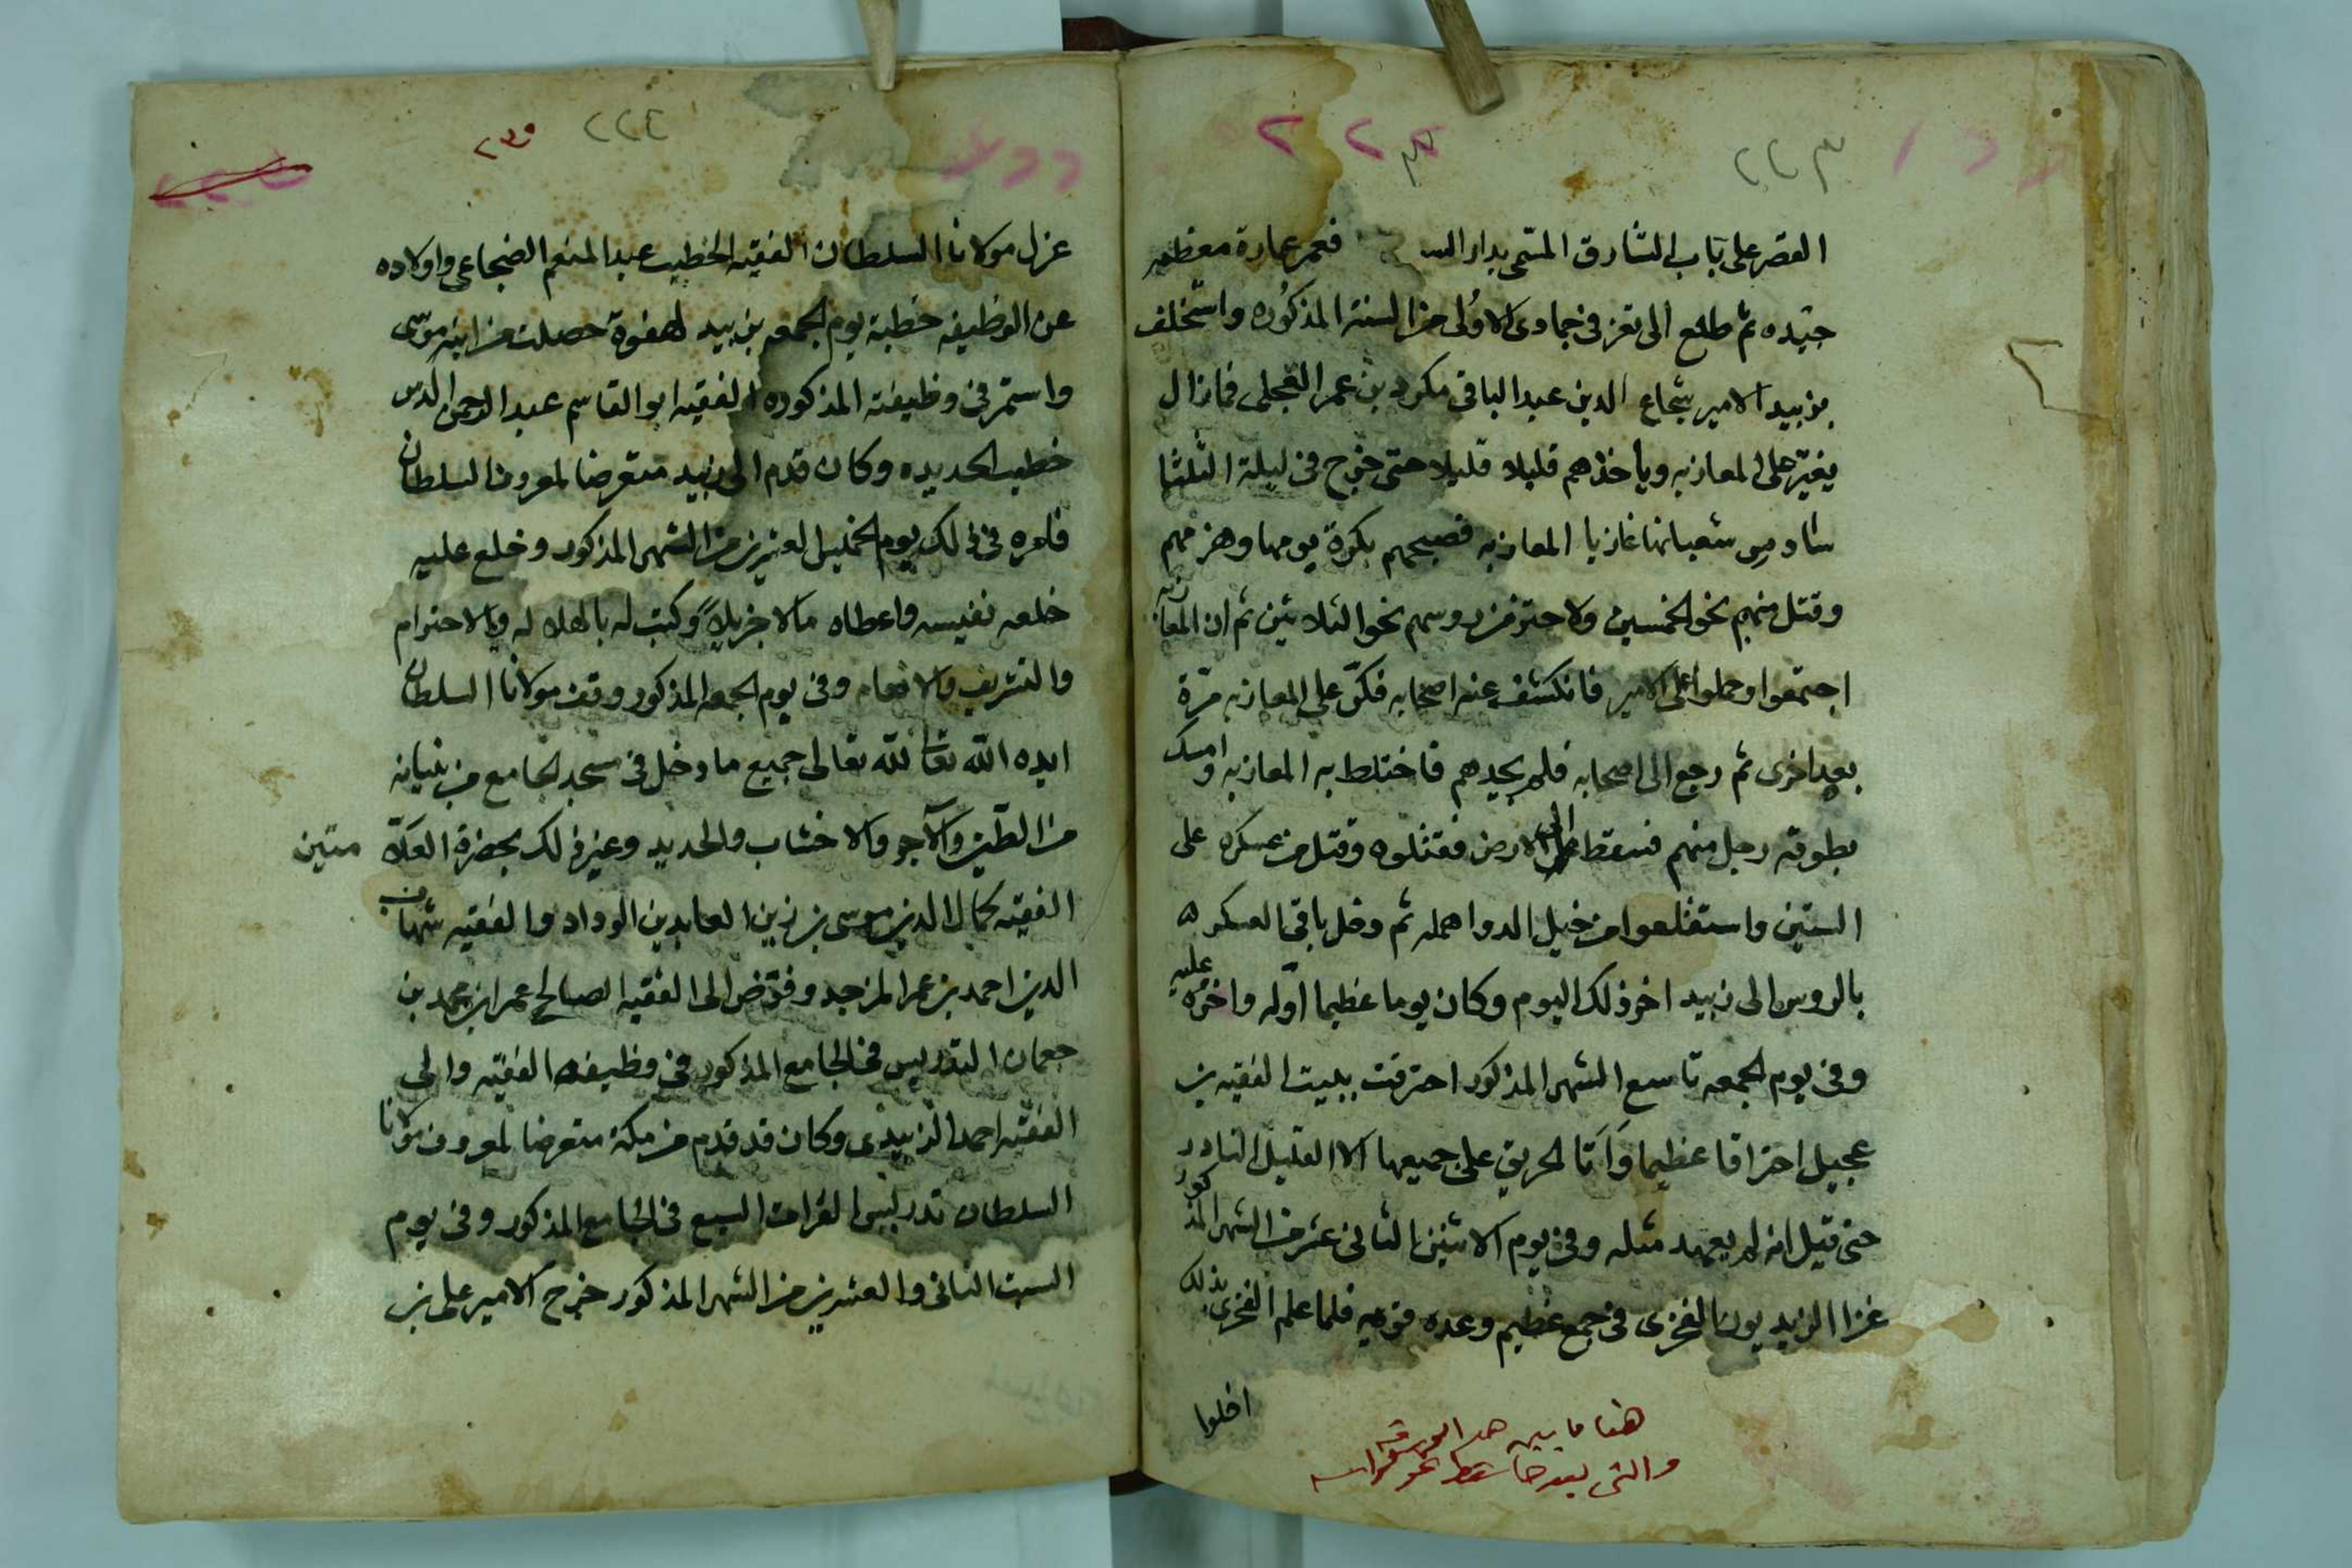 ٢٢٣
القصر على باب الشارق المسمى بدار فعمر عمارة معظمه
جيده ثم طلع الى تعز فى جمادى الاولى من السنة المذكوره واستخلف
بزبيد الامير شجاع الدين عبد الباقى بن عمر العجلى فمازال
يغير على المعازبه وياخذهم قليلا قليلا حتى خرج فى ليلة الثلثا
سادس شعبانها غازيا المعازبه فصبحهم بكرة يومها وهزمهم
وقتل منهم نحو الخمسين واحتز من روسهم نحو الثلاثين ثم ان المعازبه
اجتمعوا وحملوا على الامير فانكشف عنه اصحابه فكر على المعازبه مرة
بعد اخرى ثم رجع الى اصحابه فلم يجدهم فاختلط به المعازبه وامسك
بطوقه رجل منهم فسقط الى الارض فقتلوه وقتل من عسكره على
الستين واستقلعوا من خيل الدوا جمله ثم دخل باقى العسكر
بالروس الى زبيد اخر ذلك اليوم وكان يوما عظيما اوله واخره عليه
وفى يوم الجمعه تاسع الشهر المذكور احترقت ببيت الفقيه بن
عجيل احتراقا عظيما واتا الحريق على جميعها الا القليل النادر
حتى قيل انه لم يعهد مثله وفى يوم الاثنين الثانى عشر من الشهر المذكور
غزا الزيديون الفخرى فى جمع عظيم وعده قويه فلما علم الفخرى بذلك
اخلوا
هنا ما بين هذه الورقة
والتى بعدها سقط نحو كراسه
٢٢٤
٢٣٠
عزل مولانا السلطان الفقيه الخطيب عبد المنعم الضجاعى واولاده
عن الوظيفه خطبة يوم الجمعه بزبيد لهفوة حصلت من ابنه موسى
واستمر فى وظيفته المذكوره الفقيه ابو القاسم عبد الرحمن الدس
خطيب الحديده وكان قدم الى زبيد متعرضا لمعروف السلطان
فامره فى ذلك يوم الخميس العشرين من الشهر المذكور وخلع عليه
خلعه نفيسه واعطاه مالا جزيلا وكتب له بالجلاله والاحترام
والتشريف والانعام وفى يوم الجمعه المذكور وقف مولانا السلطان
ايده الله تعالى لله تعالى جميع ما دخل فى مسجد الجامع من بنيانه
من الطين والآجر والاخشاب والحديد وغير ذلك بحضرة العلا متين
الفقيه كمال الدين موسى بن زين العابدين الرداد والفقيه شهاب
الدين احمد بن عمر المزجد وفوض الى الفقيه الصالح عمر ابن محمد بن
جعمان التدريس فى الجامع المذكور فى وظيفة الفقيه والى
الفقيه احمد الزبيدى وكان قد قدم من مكة متعرضا لمعروف مولانا
السلطان تدريس القراات السبع فى الجامع المذكور وفى يوم
السبت الثانى والعشرين من الشهر المذكور خرج الامير على بن